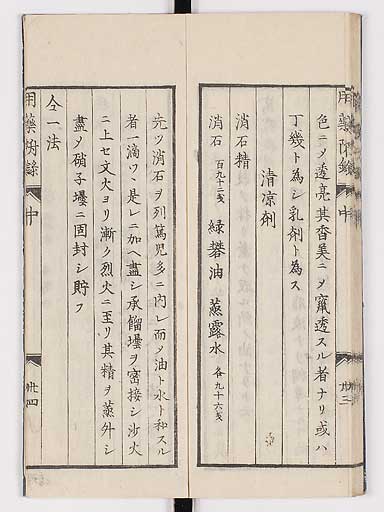 用藥附録 中 卅三
色ニ〆透亮其香臭ニ〆竄透スル者ナリ或ハ
丁幾ト為シ乳劑ト為ス
清凉劑
消石精
消石 百九十二戔 緑礬油 蒸露水 各九十六戔
先ツ消石ヲ列篤児多ニ内レ而〆油ト水ト和スル
者一滴ツヽ是レニ加ヘ盡シ承餾壜ヲ密接シ沙火
ニ上セ文火ヨリ漸ク烈火ニ至リ其精ヲ蒸外シ
盡〆硝子壜ニ固封シ貯フ
仝一法
用藥附録 中 卅四